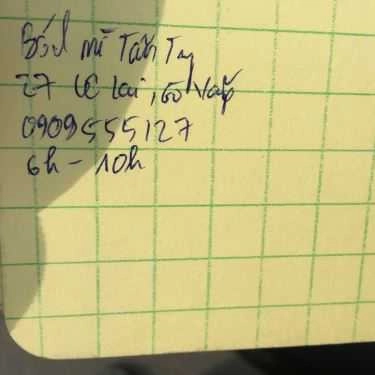 Bánh mì Tấn Ty
27 Lê Lai, Gò Vấp
0909555127
6h - 10h